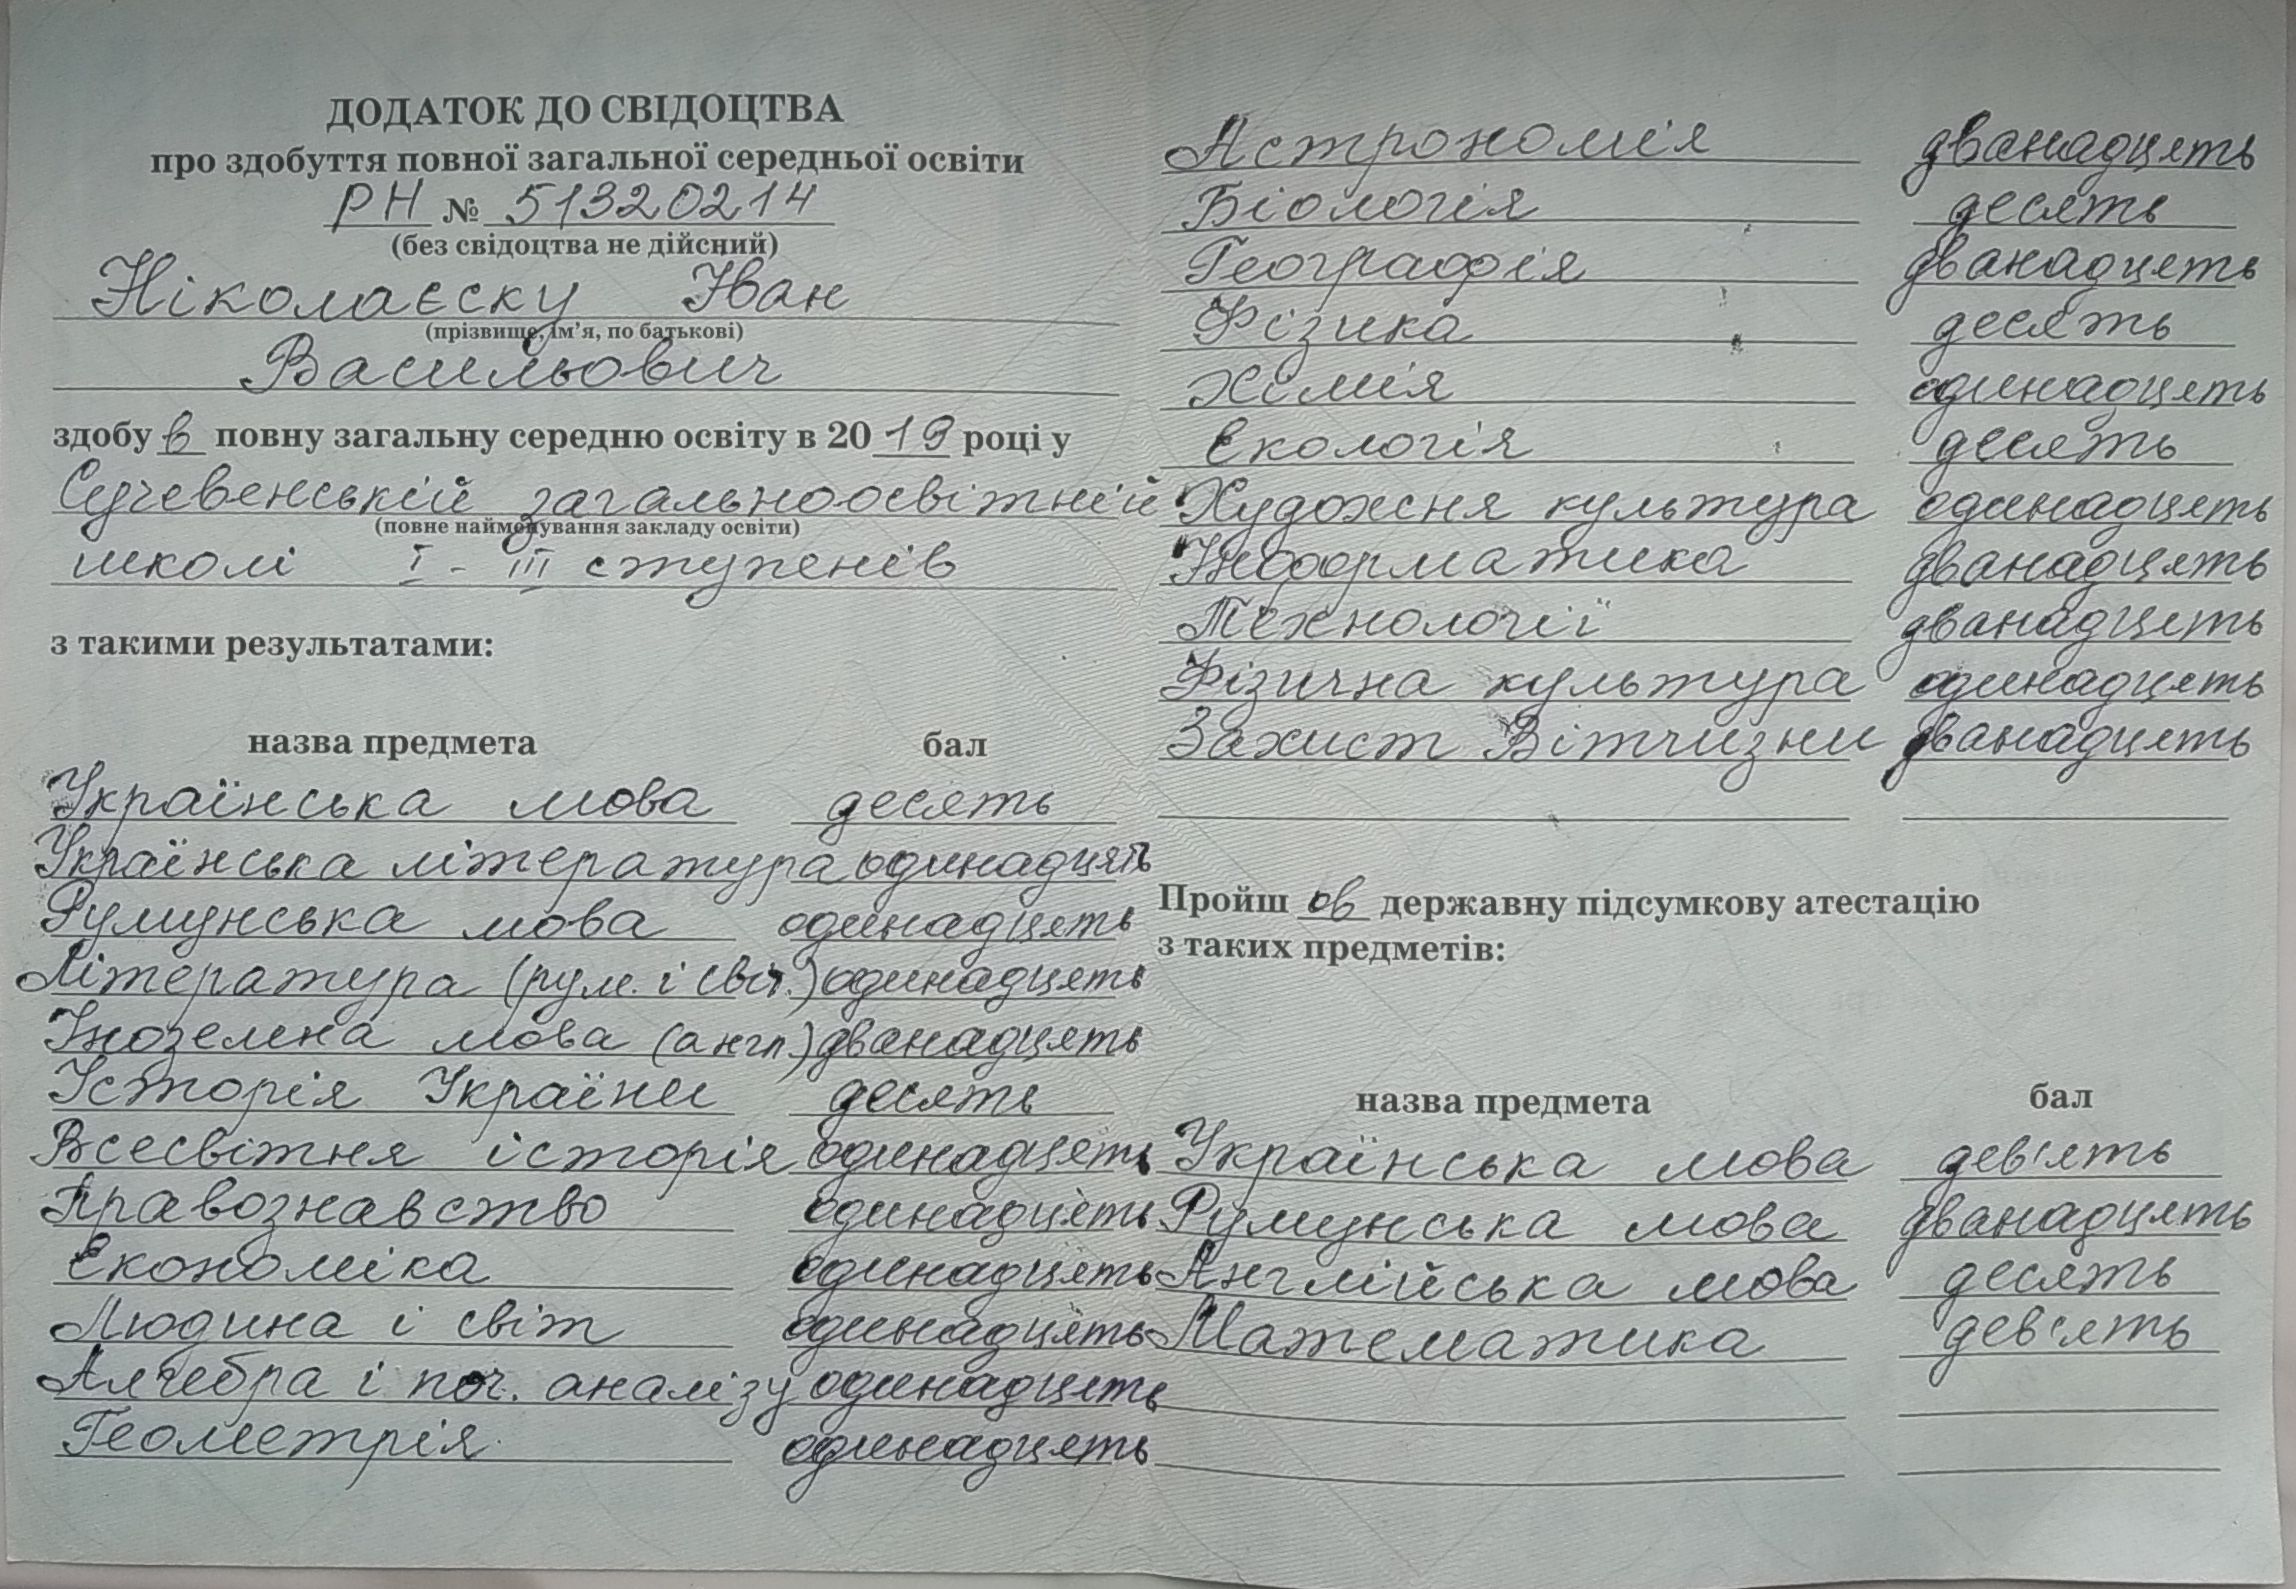 ДОДАТОК ДО СВІДОЦТВА
про здобуття повної загальної середньої освіти
РН № 51320214
(без свідоцтва не дійсний)
Ніколаєску Іван
(прізвище, ім’я, по батькові)
Васильович
здобув повну загальну середню освіту в 2019 році у
Сучевенській загальноосвітній
(повне найменування закладу освіти)
школі I - III ступенів
з такими результатами:
назва предмета бал
Українська мова десять
Українська література одинадцять
Румунська мова одинадцять
Література (рум. і світ.) одинадцять
Іноземна мова (англ.) дванадцять
Історія України десять
Всесвітня історія одинадцять
Правознавство одинадцять
Економіка одинадцять
Людина і світ одинадцять
Алгебра і поч. аналізу одинадцять
Геометрія одинадцять
Астрономія дванадцять
Біологія десять
Географія дванадцять
Фізика десять
Хімія одинадцять
Екологія десять
Художня культура одинадцять
Інформатика дванадцять
Технології дванадцять
Фізична культура одинадцять
Захист Вітчизни дванадцять
Пройшов державну підсумкову атестацію
з таких предметів:
назва предмета бал
Українська мова дев'ять
Румунська мова дванадцять
Англійська мова десять
Математика дев'ять